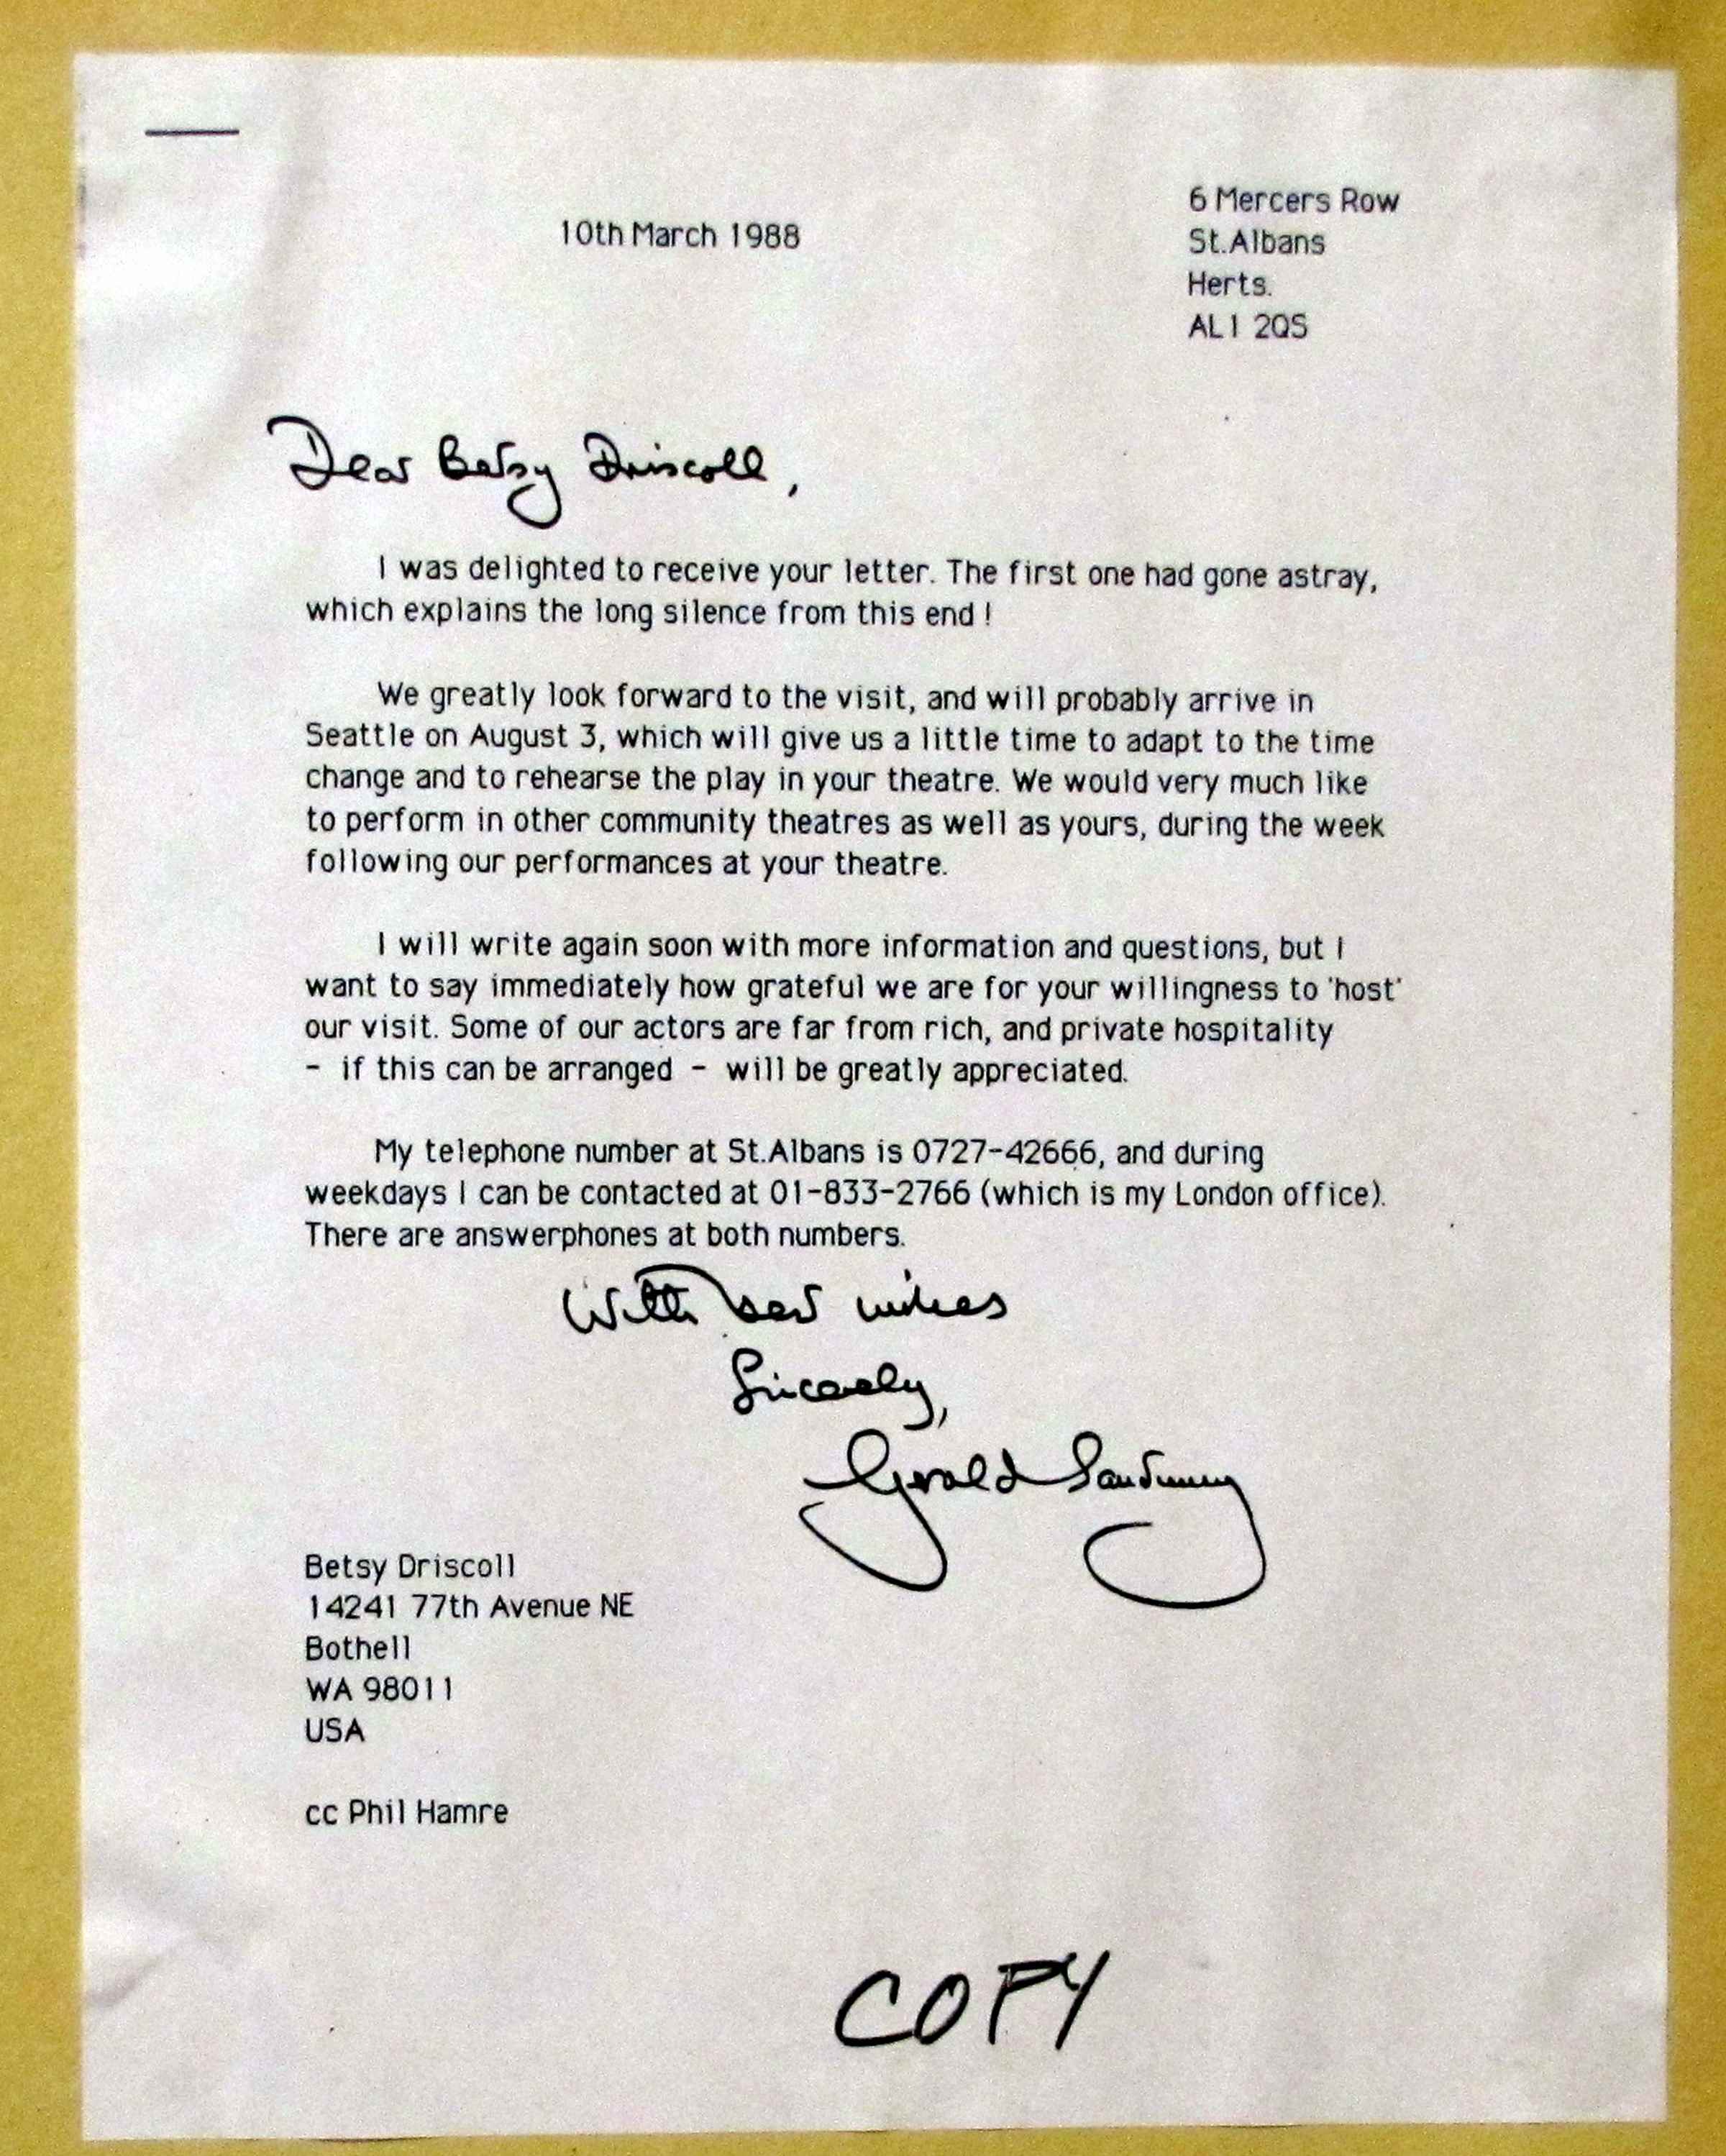 10th March 1988
6 Mercers Row
St.Albans
Herts.
AL1 2QS
Dear Betsy Driscoll,
I was delighted to receive your letter. The first one had gone astray,
which explains the long silence from this end !
We greatly look forward to the visit, and will probably arrive in
Seattle on August 3, which will give us a little time to adapt to the time
change and to rehearse the play in your theatre. We would very much like
to perform in other community theatres as well as yours, during the week
following our performances at your theatre.
I will write again soon with more information and questions, but I
want to say immediately how grateful we are for your willingness to 'host'
our visit. Some of our actors are far from rich, and private hospitality
- if this can be arranged - will be greatly appreciated.
My telephone number at St.Albans is 0727-42666, and during
weekdays I can be contacted at 01-833-2766 (which is my London office).
There are answerphones at both numbers.
With best wishes
Sincerely,
Gerald
Betsy Driscoll
14241 77th Avenue NE
Bothell
WA 98011
USA
cc Phil Hamre
COPY